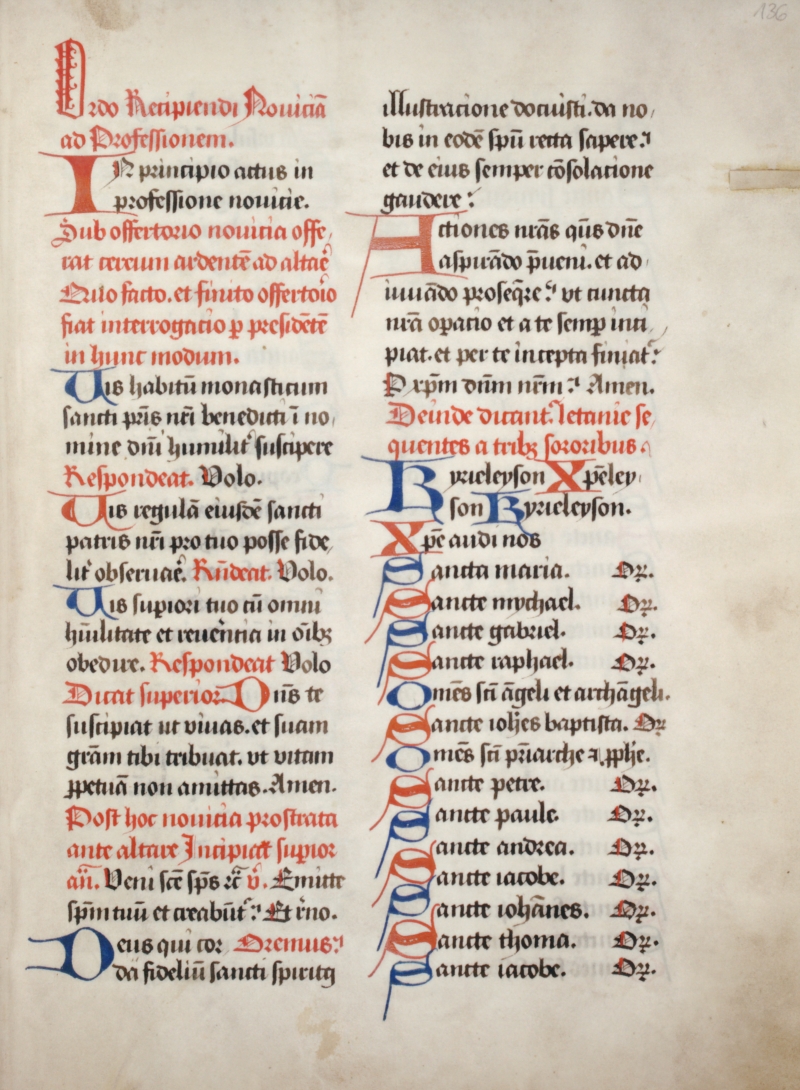 136
Ordo Recipiendi Nouiciā
ad Professionem.
IN principio actus in
professione nouicie.
Sub offertorio nouicia offe
rat cereum ardentē ad altaē
Quo facto. et finito offertoīo
fiat interrogacio ꝑ presidētē
in hunc modum.
Uis habitū monasticum
sancti pr̄is nr̄i benedicti ī no
mine dn̄i humilit᷑ suscipere
Respondeat. Volo.
Uis regulā eiusdē sancti
patris nr̄i pro tuo posse fide
lit᷑ obseruaē. Rn̄deat. Volo.
Uis supiori tuo cū omni
hūilitate et reuēntia in oīb⁊
obedire. Respondeat Volo
Dicat superior. Dn̄s te
suscipiat ut viuas. et suam
grām tibi tribuat. vt vitam
ꝑpetuā non amittas. Amen.
Post hoc nouicia prostrata
ante altare Incipiat᷑ supior
an̄. Veni scē sp̄s ⁊c̄ v̄. Emitte
sp̄m tuū et creabūt᷑. Et r̄no.
Deus qui cor Oremus
da fideliū sancti spiritꝯ
illustracione docuisti. da no
bis in eodē sp̄u recta sapere.
et de eius semper cōsolacione
gaudere.
Actiones nrās qūs dn̄e
aspirādo p̄ueni. et ad
iuuādo proseq̄re. vt cuncta
nrā oꝑacio et a te semꝑ inci
piat. et per te incepta finiat᷑.
P xp̄m dn̄m nr̄m. Amen.
Deinde dicant᷑. letanie se
quentes a trib⁊ sororibus.
Kyrieleyson Xp̄eley
son Kyrieleyson.
Xp̄e audi nos
Sancta maria. Or̄.
Sancte mychael. Or̄.
Sancte gabriel. Or̄.
Sancte raphael. Or̄.
Omēs scī āgeli et archāgeli.
Sancte ioh̄es baptista. Or̄
Omēs scī pr̄iarche ⁊ ꝓph̄e.
Sancte petre. Or̄.
Sancte paule. Or̄.
Sancte andrea. Or̄.
Sancte iacobe. Or̄.
Sancte iohānes. Or̄.
Sancte thoma. Or̄.
Sancte iacobe. Or̄.